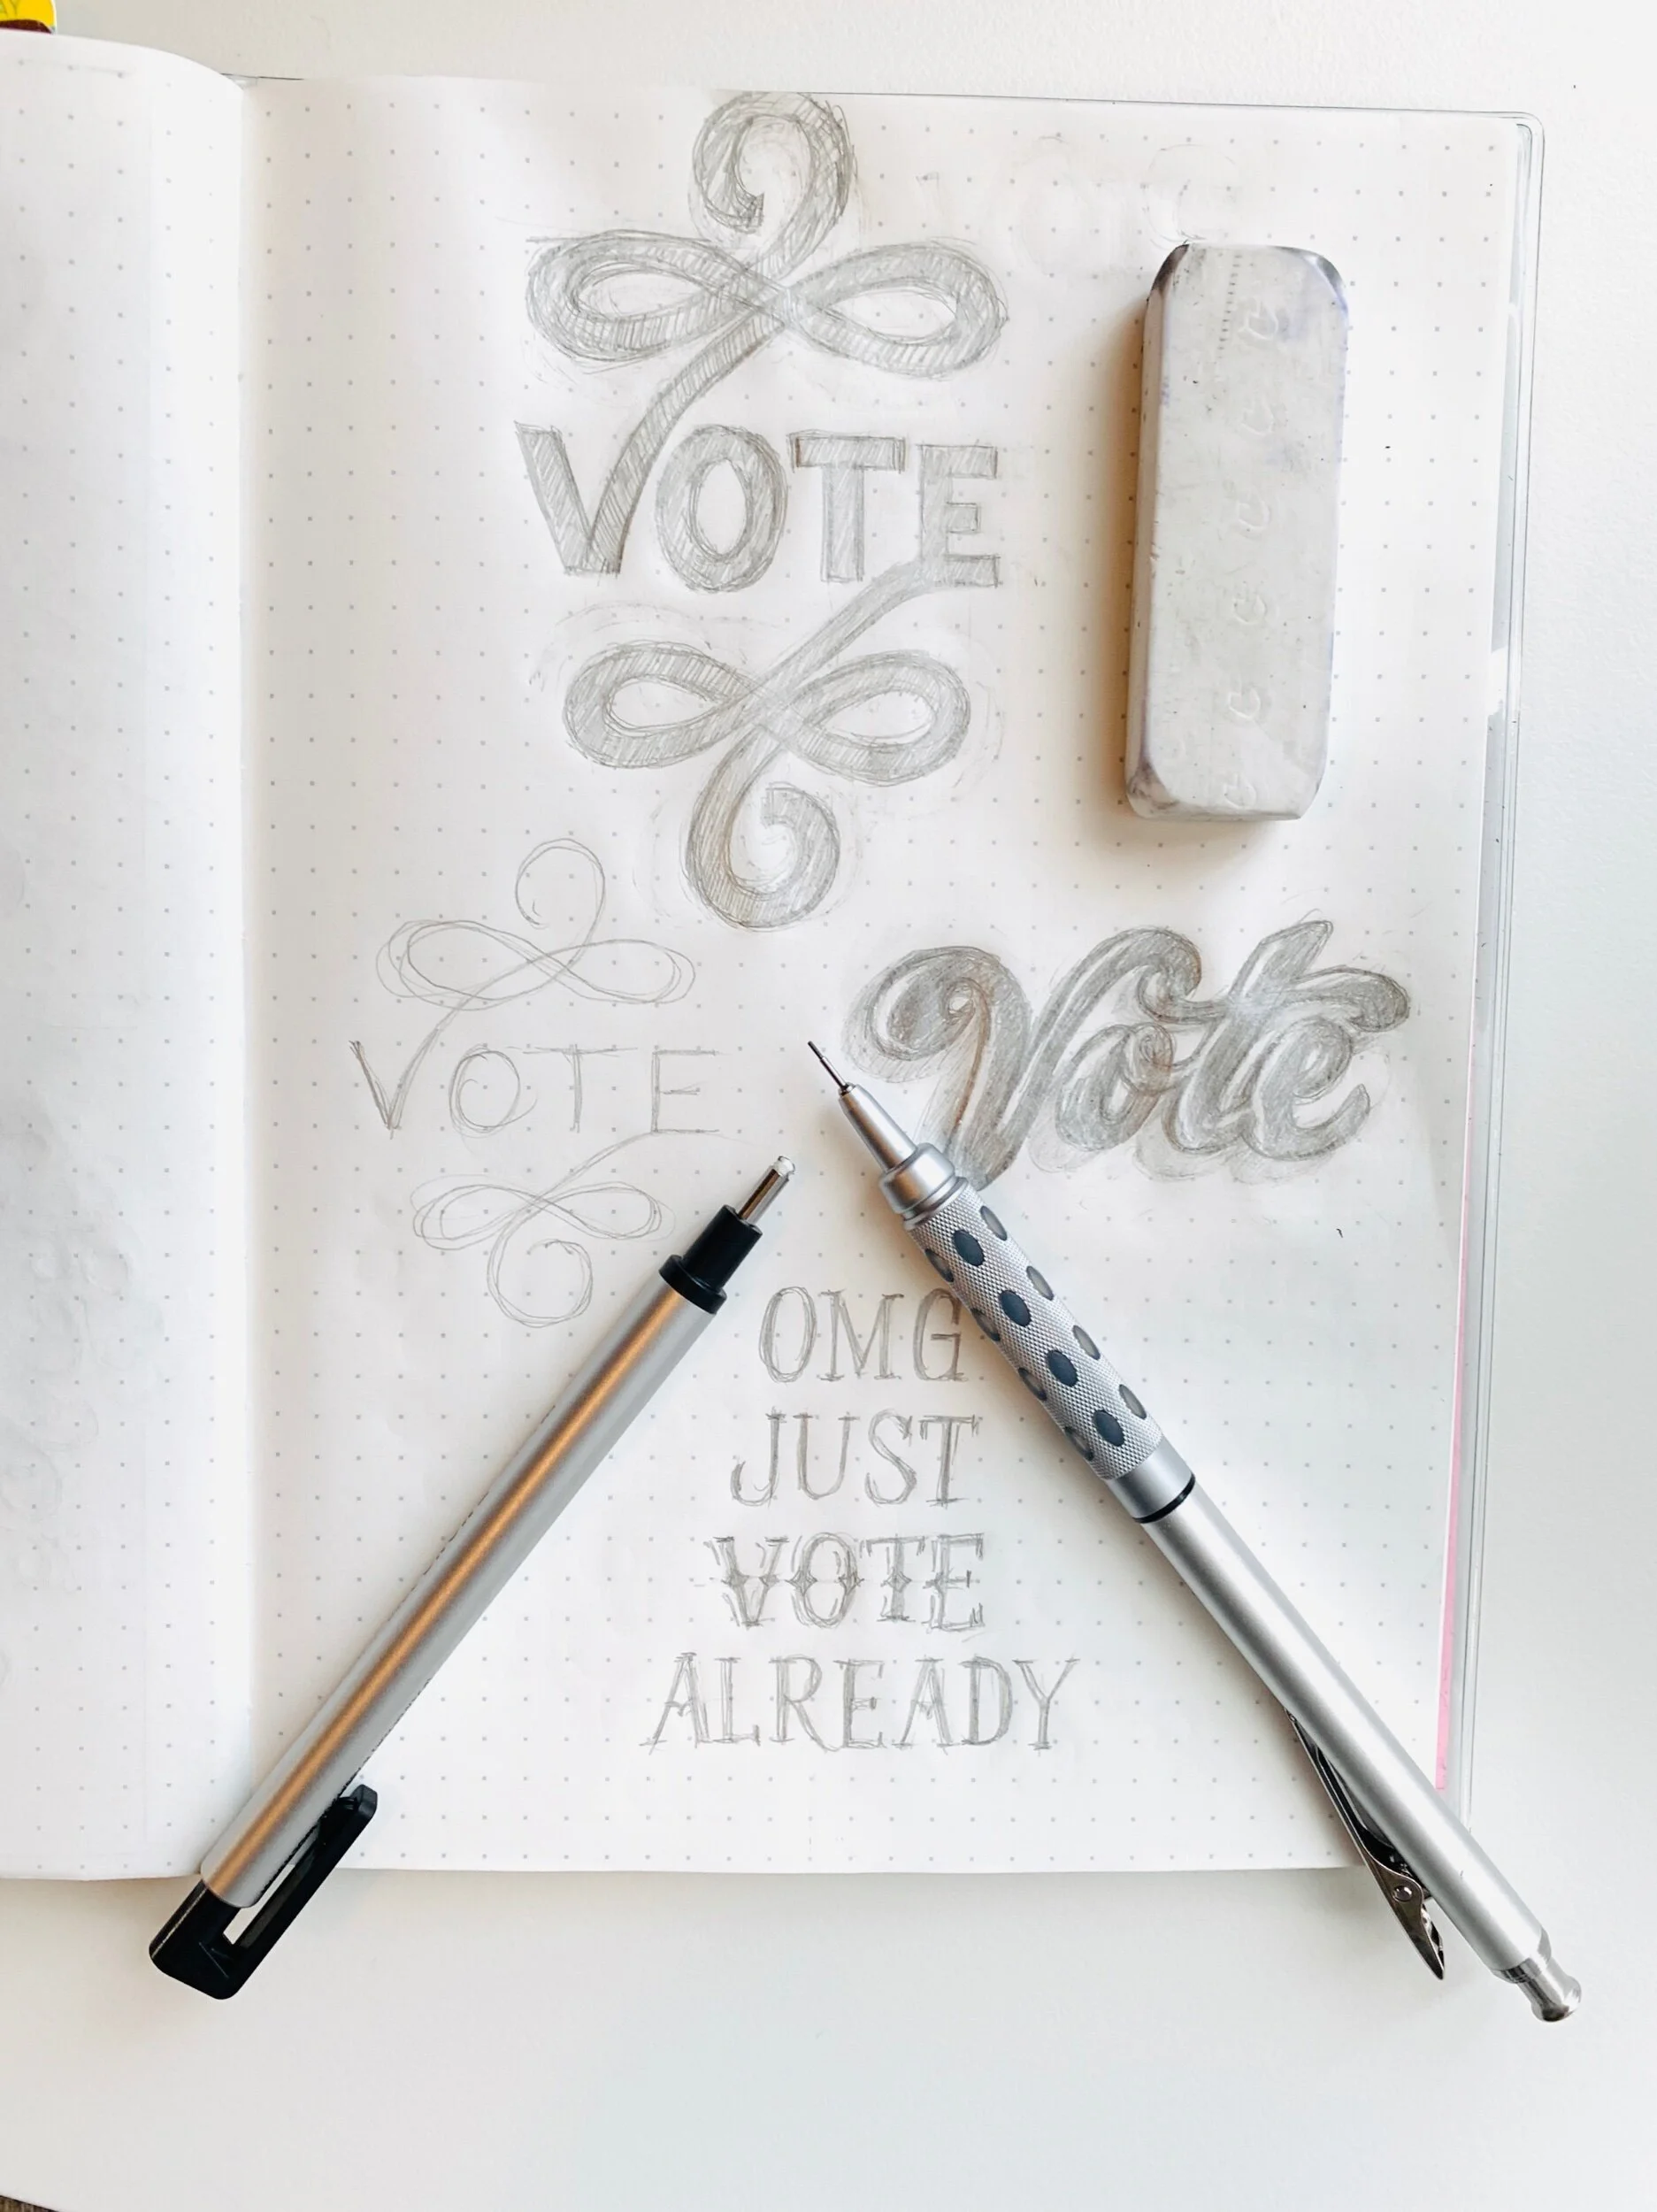 AY
VOTE
VOTE
Vote
OMG
JUST
VOTE
ALREADY